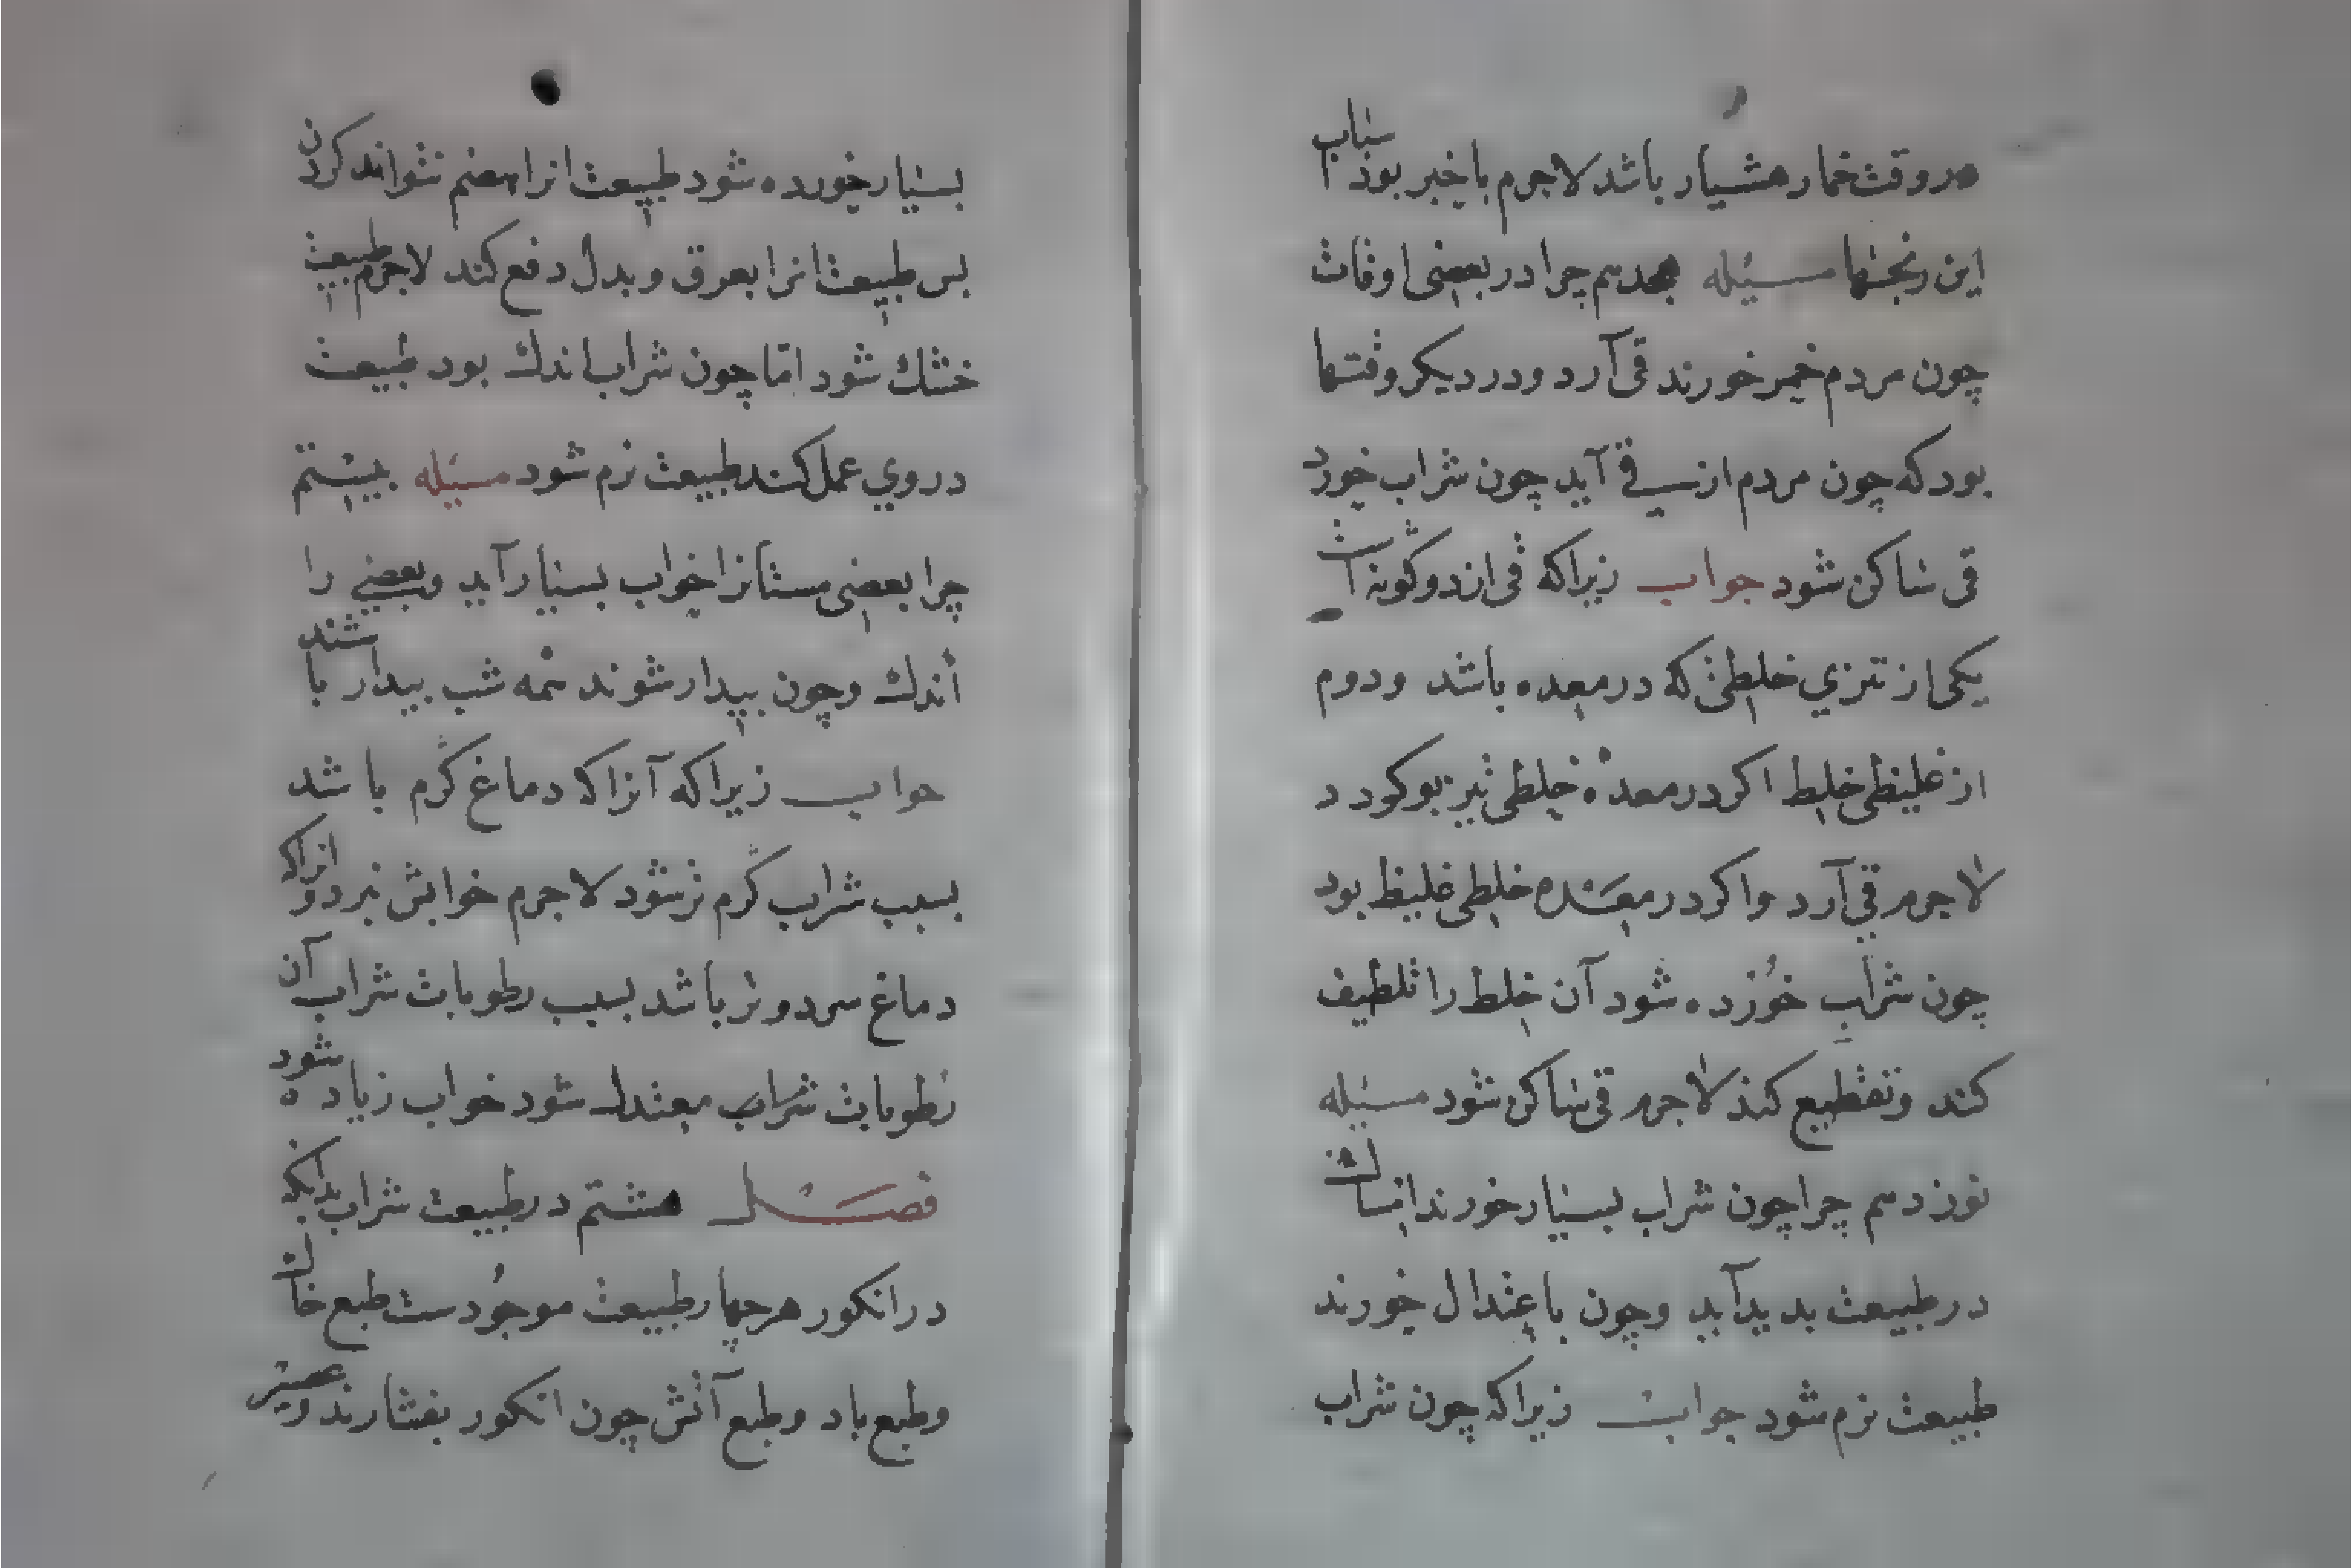 در وقت خمار هشیار باشد لاجرم با خبر بود
این رنجتها مسئله هجدهم چرا در بعضی اوقات
چون مردم خمر خورند قی آرد و در دیکر وقتها
بود که چون مردم از سی قی آید چون شراب خورد
قی ساکن شود جواب زیرا که قی از دو کونه است
یکی از تیزی خلطی که در معده باشد و دوم
از غلیظی خلط اکر در معده خلطی تیز بود
لاجرم قی آرد و اکر در معده خلطی غلیظ بود
چون شراب خورده شود آن خلط را تلطیف
کند و تقطیع کند لاجرم قی ساکن شود مسئله
نوزدهم چرا چون شراب بسیار خورند
در طبیعت بدید آید و چون باعتدال خورند
طبیعت نرم شود جواب زیرا که چون شراب
بسیار خورده شود طبیعت انرا هضم نتواند کردن
بس طبیعت انرا بعرق و ببول دفع کند لاجرم طبیعت
خشك شود امّا چون شراب اندك بود طبیعت
در وي عمل کند طبیعت نرم شود مسئله بیستم
چرا بعضی مستانرا خواب بسیار آید و بعضي را
أندك و چون بیدار شوند همه شب بیدار باشند
جواب زیرا که آنرا که دماغ کرم باشد
بسبب شراب کرم تر شود لاجرم خوابش نبرد و انرا که
دماغ سرد و تر باشد بسبب رطوبات شراب آن
رطوبات شراب معتدل شود خواب زیاده شود
فصل هشتم در طبیعت شراب بدانکه
در انکور هر چهار طبیعت موجودست طبع خاك
و طبع باد و طبع آتش چون انکور بفشارند و